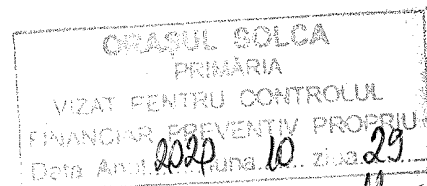 ORAȘUL SOLCA
PRIMĂRIA
VIZAT PENTRU CONTROLUL
FINANCIAR PREVENTIV PROPRIU
Data Anul 2020 luna 10 ziua 29
11